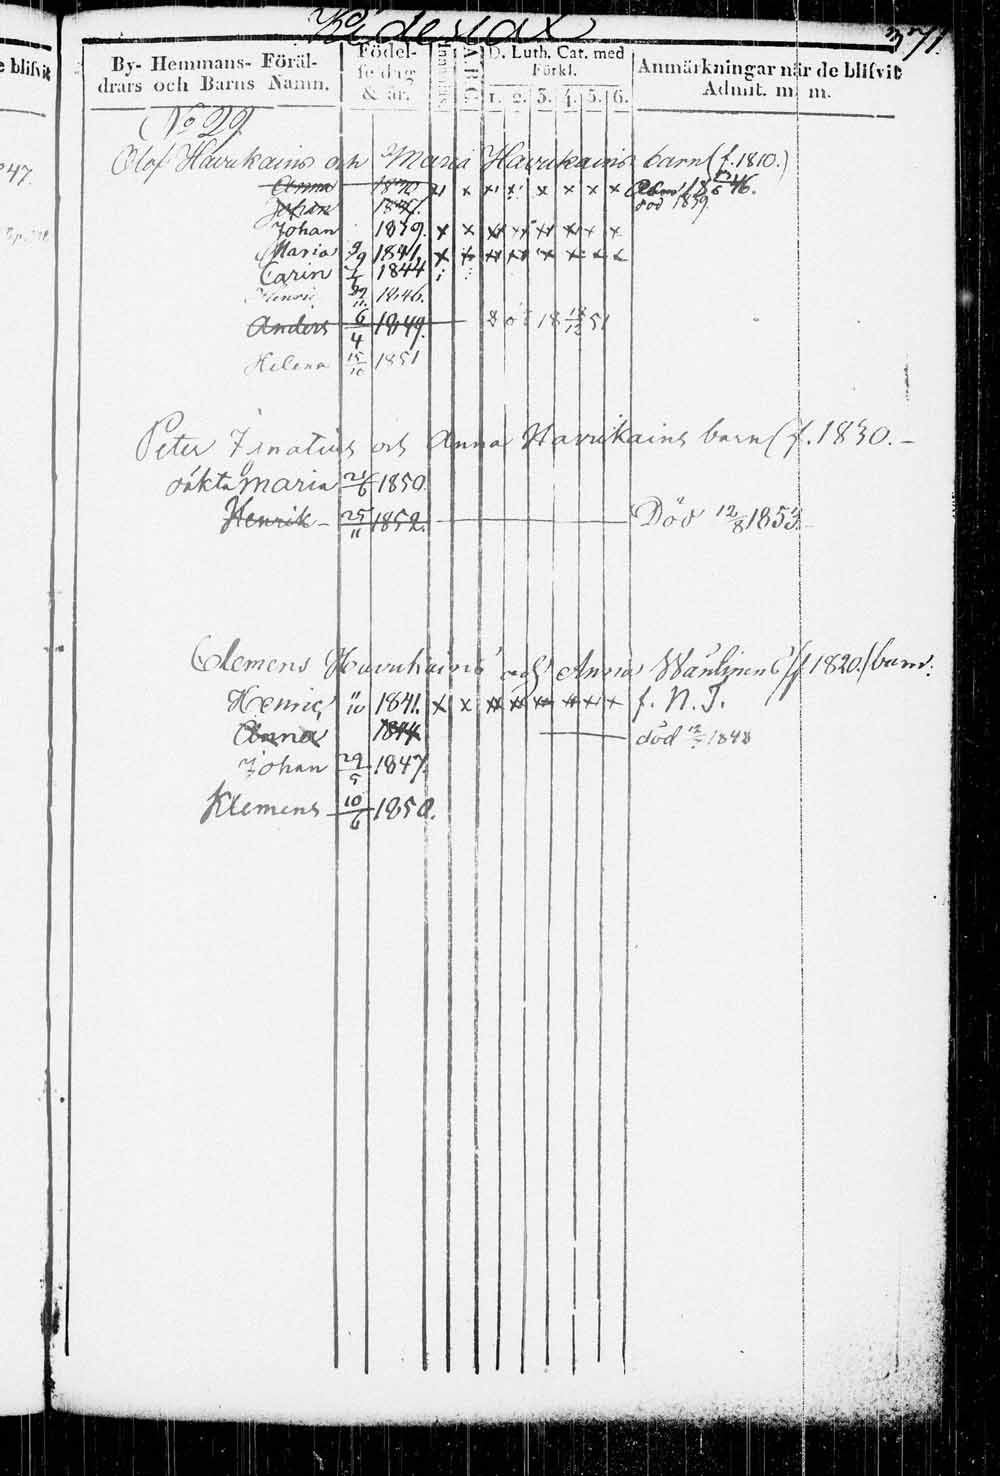 371.
e blifvit
By- Hemmans- Föräl-
drars och Barns Namn.
Födel-
sedag
& år.
Innanläs.
A B C
D. Luth. Cat. med
Förkl.
1. 2. 3. 4. 5. 6.
Anmärkningar när de blifvit
Admit. m. m.
47.
No 29
Olof Havukains och Maria Havukains barn (f. 1810.)
Anna x x x x x x x Adm 18 46.
Johan död 1839.
Johan 1839. x x x x x x x x
Maria 9 1841. x x x x x x x x
Carin 1844
Henric 1846.
Anders 6/4 1849. Död 18 51
Helena 15/10 1851
Peter Ignatius och Anna Havukains barn (f. 1830. –
oäkta Maria 21/6 1850.
Henrik – 25/11 1852. Död 12/8 1853.
Clemens Havukains och Anna (f. 1820.) barn.
Henric 11/10 1841. x x x x x x x x f. N. T.
Anna 1844 död 1848
Johan 29/9 1847.
Klemens 10/6 1850.